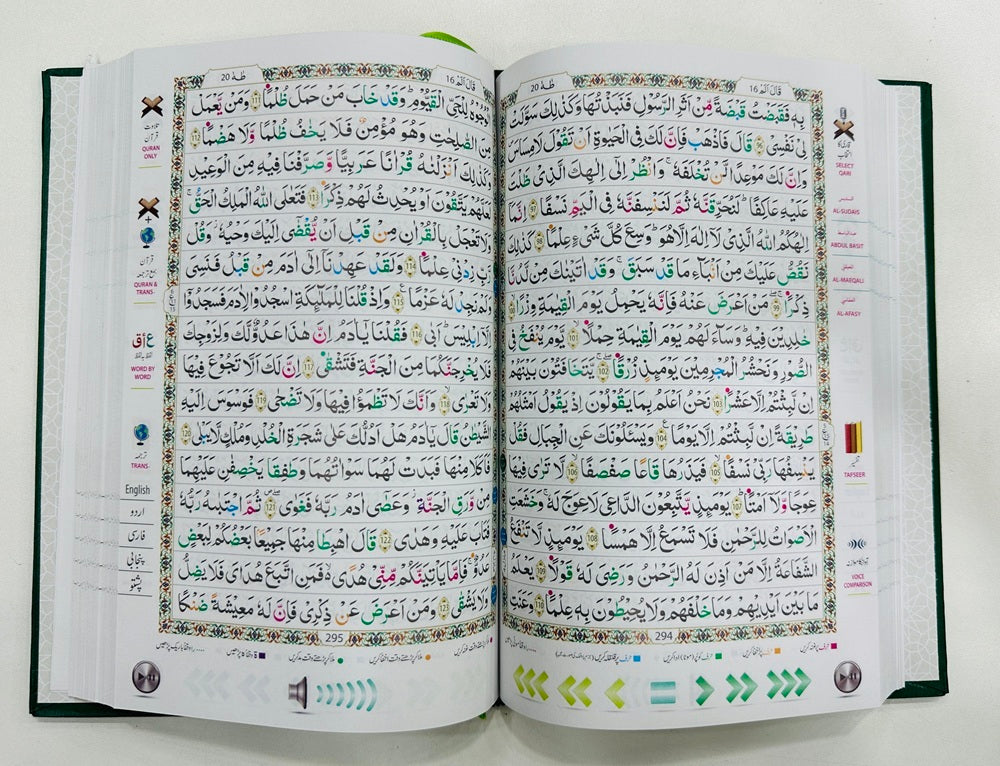 قَالَ اَلَمْ 16
طٰهٰ 20
بِهٖ فَقَبَضْتُ قَبْضَةً مِّنْ اَثَرِ الرَّسُوْلِ فَنَبَذْتُهَا وَكَذٰلِكَ سَوَّلَتْ
لِیْ نَفْسِیْ 96 قَالَ فَاذْهَبْ فَاِنَّ لَكَ فِی الْحَیٰوةِ اَنْ تَقُوْلَ لَا مِسَاسَ
وَاِنَّ لَكَ مَوْعِدًا لَّنْ تُخْلَفَهٗ ۚ وَانْظُرْ اِلٰۤی اِلٰهِكَ الَّذِیْ ظَلْتَ
عَلَیْهِ عَاكِفًا ؕ لَنُحَرِّقَنَّهٗ ثُمَّ لَنَنْسِفَنَّهٗ فِی الْیَمِّ نَسْفًا 97 اِنَّمَاۤ
اِلٰهُكُمُ اللّٰهُ الَّذِیْ لَاۤ اِلٰهَ اِلَّا هُوَ ؕ وَسِعَ كُلَّ شَیْءٍ عِلْمًا 98 كَذٰلِكَ
نَقُصُّ عَلَیْكَ مِنْ اَنْۢبَآءِ مَا قَدْ سَبَقَ ۚ وَقَدْ اٰتَیْنٰكَ مِنْ لَّدُنَّا
ذِكْرًا 99 مَنْ اَعْرَضَ عَنْهُ فَاِنَّهٗ یَحْمِلُ یَوْمَ الْقِیٰمَةِ وِزْرًا 100
خٰلِدِیْنَ فِیْهِ ؕ وَسَآءَ لَهُمْ یَوْمَ الْقِیٰمَةِ حِمْلًا 101 یَّوْمَ یُنْفَخُ فِی
الصُّوْرِ وَنَحْشُرُ الْمُجْرِمِیْنَ یَوْمَىِٕذٍ زُرْقًا 102 یَّتَخَافَتُوْنَ بَیْنَهُمْ
اِنْ لَّبِثْتُمْ اِلَّا عَشْرًا 103 نَحْنُ اَعْلَمُ بِمَا یَقُوْلُوْنَ اِذْ یَقُوْلُ اَمْثَلُهُمْ
طَرِیْقَةً اِنْ لَّبِثْتُمْ اِلَّا یَوْمًا 104 وَیَسْـَٔلُوْنَكَ عَنِ الْجِبَالِ فَقُلْ
یَنْسِفُهَا رَبِّیْ نَسْفًا 105 فَیَذَرُهَا قَاعًا صَفْصَفًا 106 لَّا تَرٰی فِیْهَا
عِوَجًا وَّلَاۤ اَمْتًا 107 یَوْمَىِٕذٍ یَّتَّبِعُوْنَ الدَّاعِیَ لَا عِوَجَ لَهٗ ۚ وَخَشَعَتِ
الْاَصْوَاتُ لِلرَّحْمٰنِ فَلَا تَسْمَعُ اِلَّا هَمْسًا 108 یَوْمَىِٕذٍ لَّا تَنْفَعُ
الشَّفَاعَةُ اِلَّا مَنْ اَذِنَ لَهُ الرَّحْمٰنُ وَرَضِیَ لَهٗ قَوْلًا 109 یَعْلَمُ
مَا بَیْنَ اَیْدِیْهِمْ وَمَا خَلْفَهُمْ وَلَا یُحِیْطُوْنَ بِهٖ عِلْمًا 110 وَعَنَتِ
294
SELECT
QARI
AL-SUDAIS
ABDUL BASIT
AL-MAEQALI
AL-AFASY
TAFSEER
VOICE
COMPARISON
قَالَ اَلَمْ 16
طٰهٰ 20
الْوُجُوْهُ لِلْحَیِّ الْقَیُّوْمِ ؕ وَقَدْ خَابَ مَنْ حَمَلَ ظُلْمًا 111 وَمَنْ یَّعْمَلْ
مِنَ الصّٰلِحٰتِ وَهُوَ مُؤْمِنٌ فَلَا یَخٰفُ ظُلْمًا وَّلَا هَضْمًا 112
وَكَذٰلِكَ اَنْزَلْنٰهُ قُرْاٰنًا عَرَبِیًّا وَّصَرَّفْنَا فِیْهِ مِنَ الْوَعِیْدِ
لَعَلَّهُمْ یَتَّقُوْنَ اَوْ یُحْدِثُ لَهُمْ ذِكْرًا 113 فَتَعٰلَی اللّٰهُ الْمَلِكُ الْحَقُّ ۚ
وَلَا تَعْجَلْ بِالْقُرْاٰنِ مِنْ قَبْلِ اَنْ یُّقْضٰۤی اِلَیْكَ وَحْیُهٗ ؗ وَقُلْ
رَّبِّ زِدْنِیْ عِلْمًا 114 وَلَقَدْ عَهِدْنَاۤ اِلٰۤی اٰدَمَ مِنْ قَبْلُ فَنَسِیَ
وَلَمْ نَجِدْ لَهٗ عَزْمًا 115 وَاِذْ قُلْنَا لِلْمَلٰٓىِٕكَةِ اسْجُدُوْا لِاٰدَمَ فَسَجَدُوْۤا
اِلَّاۤ اِبْلِیْسَ ؕ اَبٰی 116 فَقُلْنَا یٰۤاٰدَمُ اِنَّ هٰذَا عَدُوٌّ لَّكَ وَلِزَوْجِكَ
فَلَا یُخْرِجَنَّكُمَا مِنَ الْجَنَّةِ فَتَشْقٰی 117 اِنَّ لَكَ اَلَّا تَجُوْعَ فِیْهَا
وَلَا تَعْرٰی 118 وَاَنَّكَ لَا تَظْمَؤُا فِیْهَا وَلَا تَضْحٰی 119 فَوَسْوَسَ اِلَیْهِ
الشَّیْطٰنُ قَالَ یٰۤاٰدَمُ هَلْ اَدُلُّكَ عَلٰی شَجَرَةِ الْخُلْدِ وَمُلْكٍ لَّا یَبْلٰی 120
فَاَكَلَا مِنْهَا فَبَدَتْ لَهُمَا سَوْاٰتُهُمَا وَطَفِقَا یَخْصِفٰنِ عَلَیْهِمَا
مِنْ وَّرَقِ الْجَنَّةِ ؗ وَعَصٰۤی اٰدَمُ رَبَّهٗ فَغَوٰی 121 ثُمَّ اجْتَبٰىهُ رَبُّهٗ
فَتَابَ عَلَیْهِ وَهَدٰی 122 قَالَ اهْبِطَا مِنْهَا جَمِیْعًۢا بَعْضُكُمْ لِبَعْضٍ
عَدُوٌّ ۚ فَاِمَّا یَاْتِیَنَّكُمْ مِّنِّیْ هُدًی ۙ۬ فَمَنِ اتَّبَعَ هُدَایَ فَلَا یَضِلُّ
وَلَا یَشْقٰی 123 وَمَنْ اَعْرَضَ عَنْ ذِكْرِیْ فَاِنَّ لَهٗ مَعِیْشَةً ضَنْكًا
295
تلاوت
قرآن
QURAN
ONLY
قرآن
مع ترجمہ
QURAN &
TRANS-
ع أ ق
لفظ بہ لفظ
WORD BY
WORD
ترجمہ
TRANS-
English
اردو
فارسی
پنجابی
پشتو